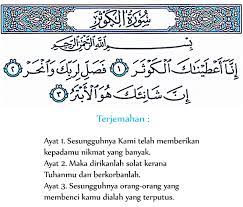 سُورَةُ الْكَوْثَرِ
بِسْمِ اللَّهِ الرَّحْمَٰنِ الرَّحِيمِ
إِنَّا أَعْطَيْنَاكَ الْكَوْثَرَ ١ فَصَلِّ لِرَبِّكَ وَانْحَرْ ٢
إِنَّ شَانِئَكَ هُوَ الْأَبْتَرُ ٣
Terjemahan :
Ayat 1. Sesungguhnya Kami telah memberikan
kepadamu nikmat yang banyak.
Ayat 2. Maka dirikanlah solat kerana
Tuhanmu dan berkorbanlah.
Ayat 3. Sesungguhnya orang-orang yang
membenci kamu dialah yang terputus.